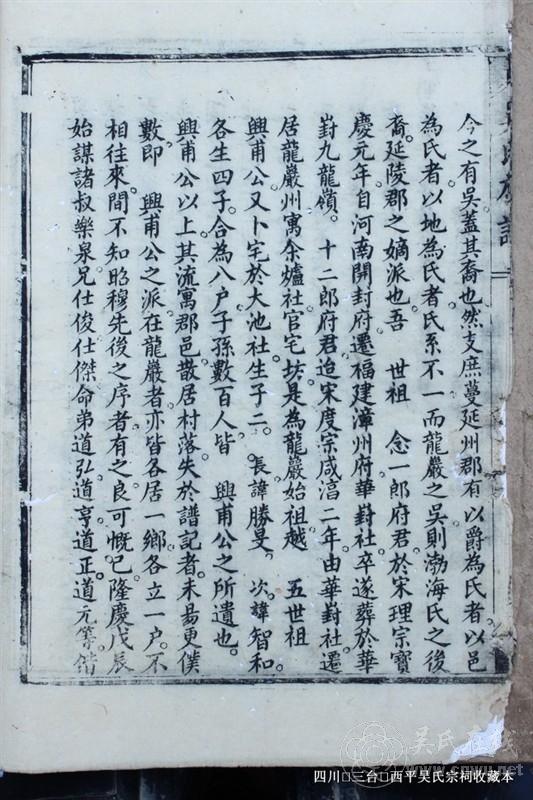 今之有吳蓋其裔也然支庶蔓延州郡有以爵為氏者以邑
為氏者以地為氏者氏系不一而龍巖之吳則渤海氏之後
裔延陵郡之嫡派也吾 世祖 念一郎府君於宋理宗寶
慶元年自河南開封府遷福建漳州府華葑社卒遂葬於華
葑九龍嶺 十二郎府君迨宋度宗咸淳二年由華葑社遷
居龍巖州寓余爐社官宅坊是為龍巖始祖越 五世祖
興甫公又卜宅於大池社生子二 長諱勝旻 次諱智和
各生四子合為八户子孫數百人皆 興甫公之所遺也
興甫公以上其流寓郡邑散居村落失於譜記者未易更僕
數即 興甫公之派在龍巖者亦皆各居一鄉各立一户不
相往來間不知昭穆先後之序者有之良可慨已隆慶戊辰
始謀諸叔樂泉兄仕俊仕傑命弟道弘道亨道正道元等偕
吳氏在线
www.cnwu.net
四川□三台□西平吴氏宗祠收藏本